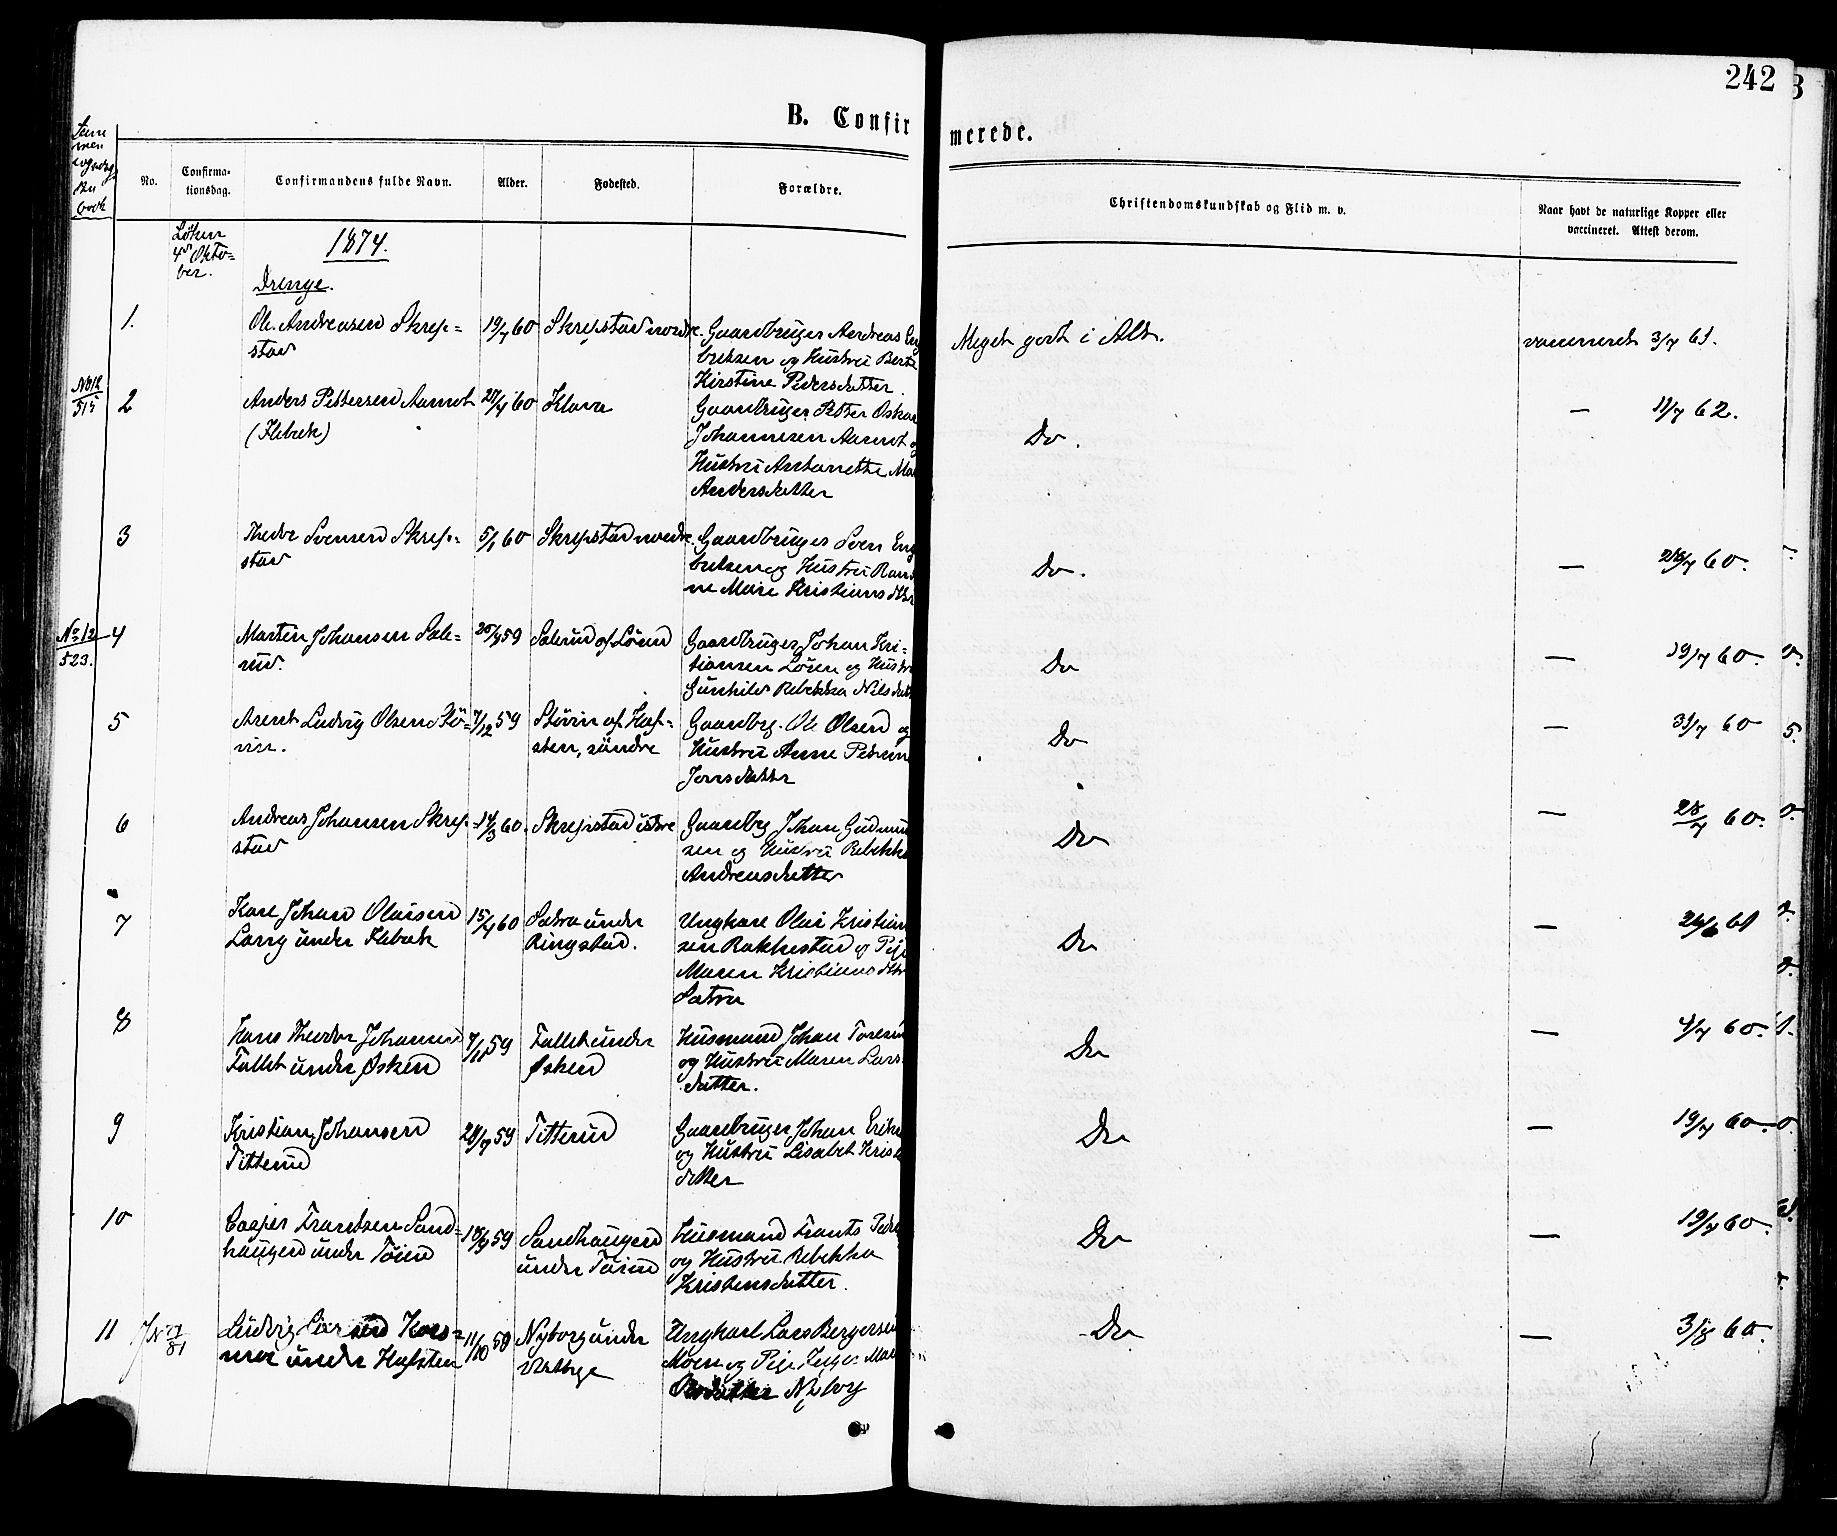 242
B. Confir
merede.
No.
Confirma-
tionsdag.
Confirmandens fulde Navn.
Alder.
Fødested.
Forældre.
Christendomskundskab og Flid m. v.
Naar havt de naturlige Kopper eller
vaccineret. Attest derom.
Løten
4de Okto-
ber.
1874.
Drenge.
1.
Ole Andreasen Skrep-
stad
19/7 60
Skrepstad nordre.
Gaardbruger Andreas Eng
bretsen og Hustru Berte
Kirstine Pedersdatter
Meget godt i Alt.
vaccineret 3/7 61.
No 12
515
2
Anders Pettersen Aamot
(Flebæk)
60
Klova
Gaardbruger Petter Oskar
Johannesen Aamot og
Hustru Antonette Ma
Andersdatter
Do.
— 11/7 62.
3
Thedor Svensen Skrep-
stad
5/1 60
Skrepstad nordre.
Gaardbruger Sven Eng
bretsen og Hustru Ran
ne Marie Kristiansdttr
Do.
— 28/7 60.
No 12
523.
4
Martin Johansen Sole-
rud.
59
Solerud af Løren
Gaardbruger Johan Kri-
stiansen Løren og Hustru
Gunhild Rebekka Nilsdatt
Do
— 19/7 60.
5
Arent Ludvig Olsen Stö-
vin.
7/12 59
Stövin af Haf-
sten, söndre
Gaardbrg. Ole Olsen og
Hustru Anne Petrine
Jonsdatter
Do
— 31/7 60
6
Andreas Johansen Skrep-
stad
14/3 60.
Skrepstad östre
Gaardbrg Johan Gudmun
sen og Hustru Rebekka
Andreasdatter
Do
— 28/7 60.
7
Karl Johan Olaisen
Larry under Flebæk
15/4 60
Sætra under
Ringstad.
Ungkarl Olai Kristian
sen Rakkestad og Pige
Maren Kristiansdttr
Sætra
Do
— 26/6 61
8
Hans Theodor Johansen
Fallet under Øsken
7/11 59
Fallet under
Øsken
Husmand Johan Toresen
og Hustru Maren Lars
datter.
Do
— 4/7 60.
9
Kristian Johansen
Titterud
28/7 59
Titterud
Gaardbruger Johan Erikse
og Hustru Lisabet Krist
datter
Do
— 19/7 60.
10
Casper Frantsen Sand-
haugen under Töien
18/9 59
Sandhaugen
under Töien
Husmand Frants Peder
og Hustru Rebekka
Kristensdatter.
Do
— 19/7 60.
11
Ludvig Larsen Kors-
moe under Hafsten
11/10 58
Nyborg under
Ungkarl Lars Bergersen
Moen og Pige Inger Mar
Olsdatter Nyborg
Do
— 3/8 60.